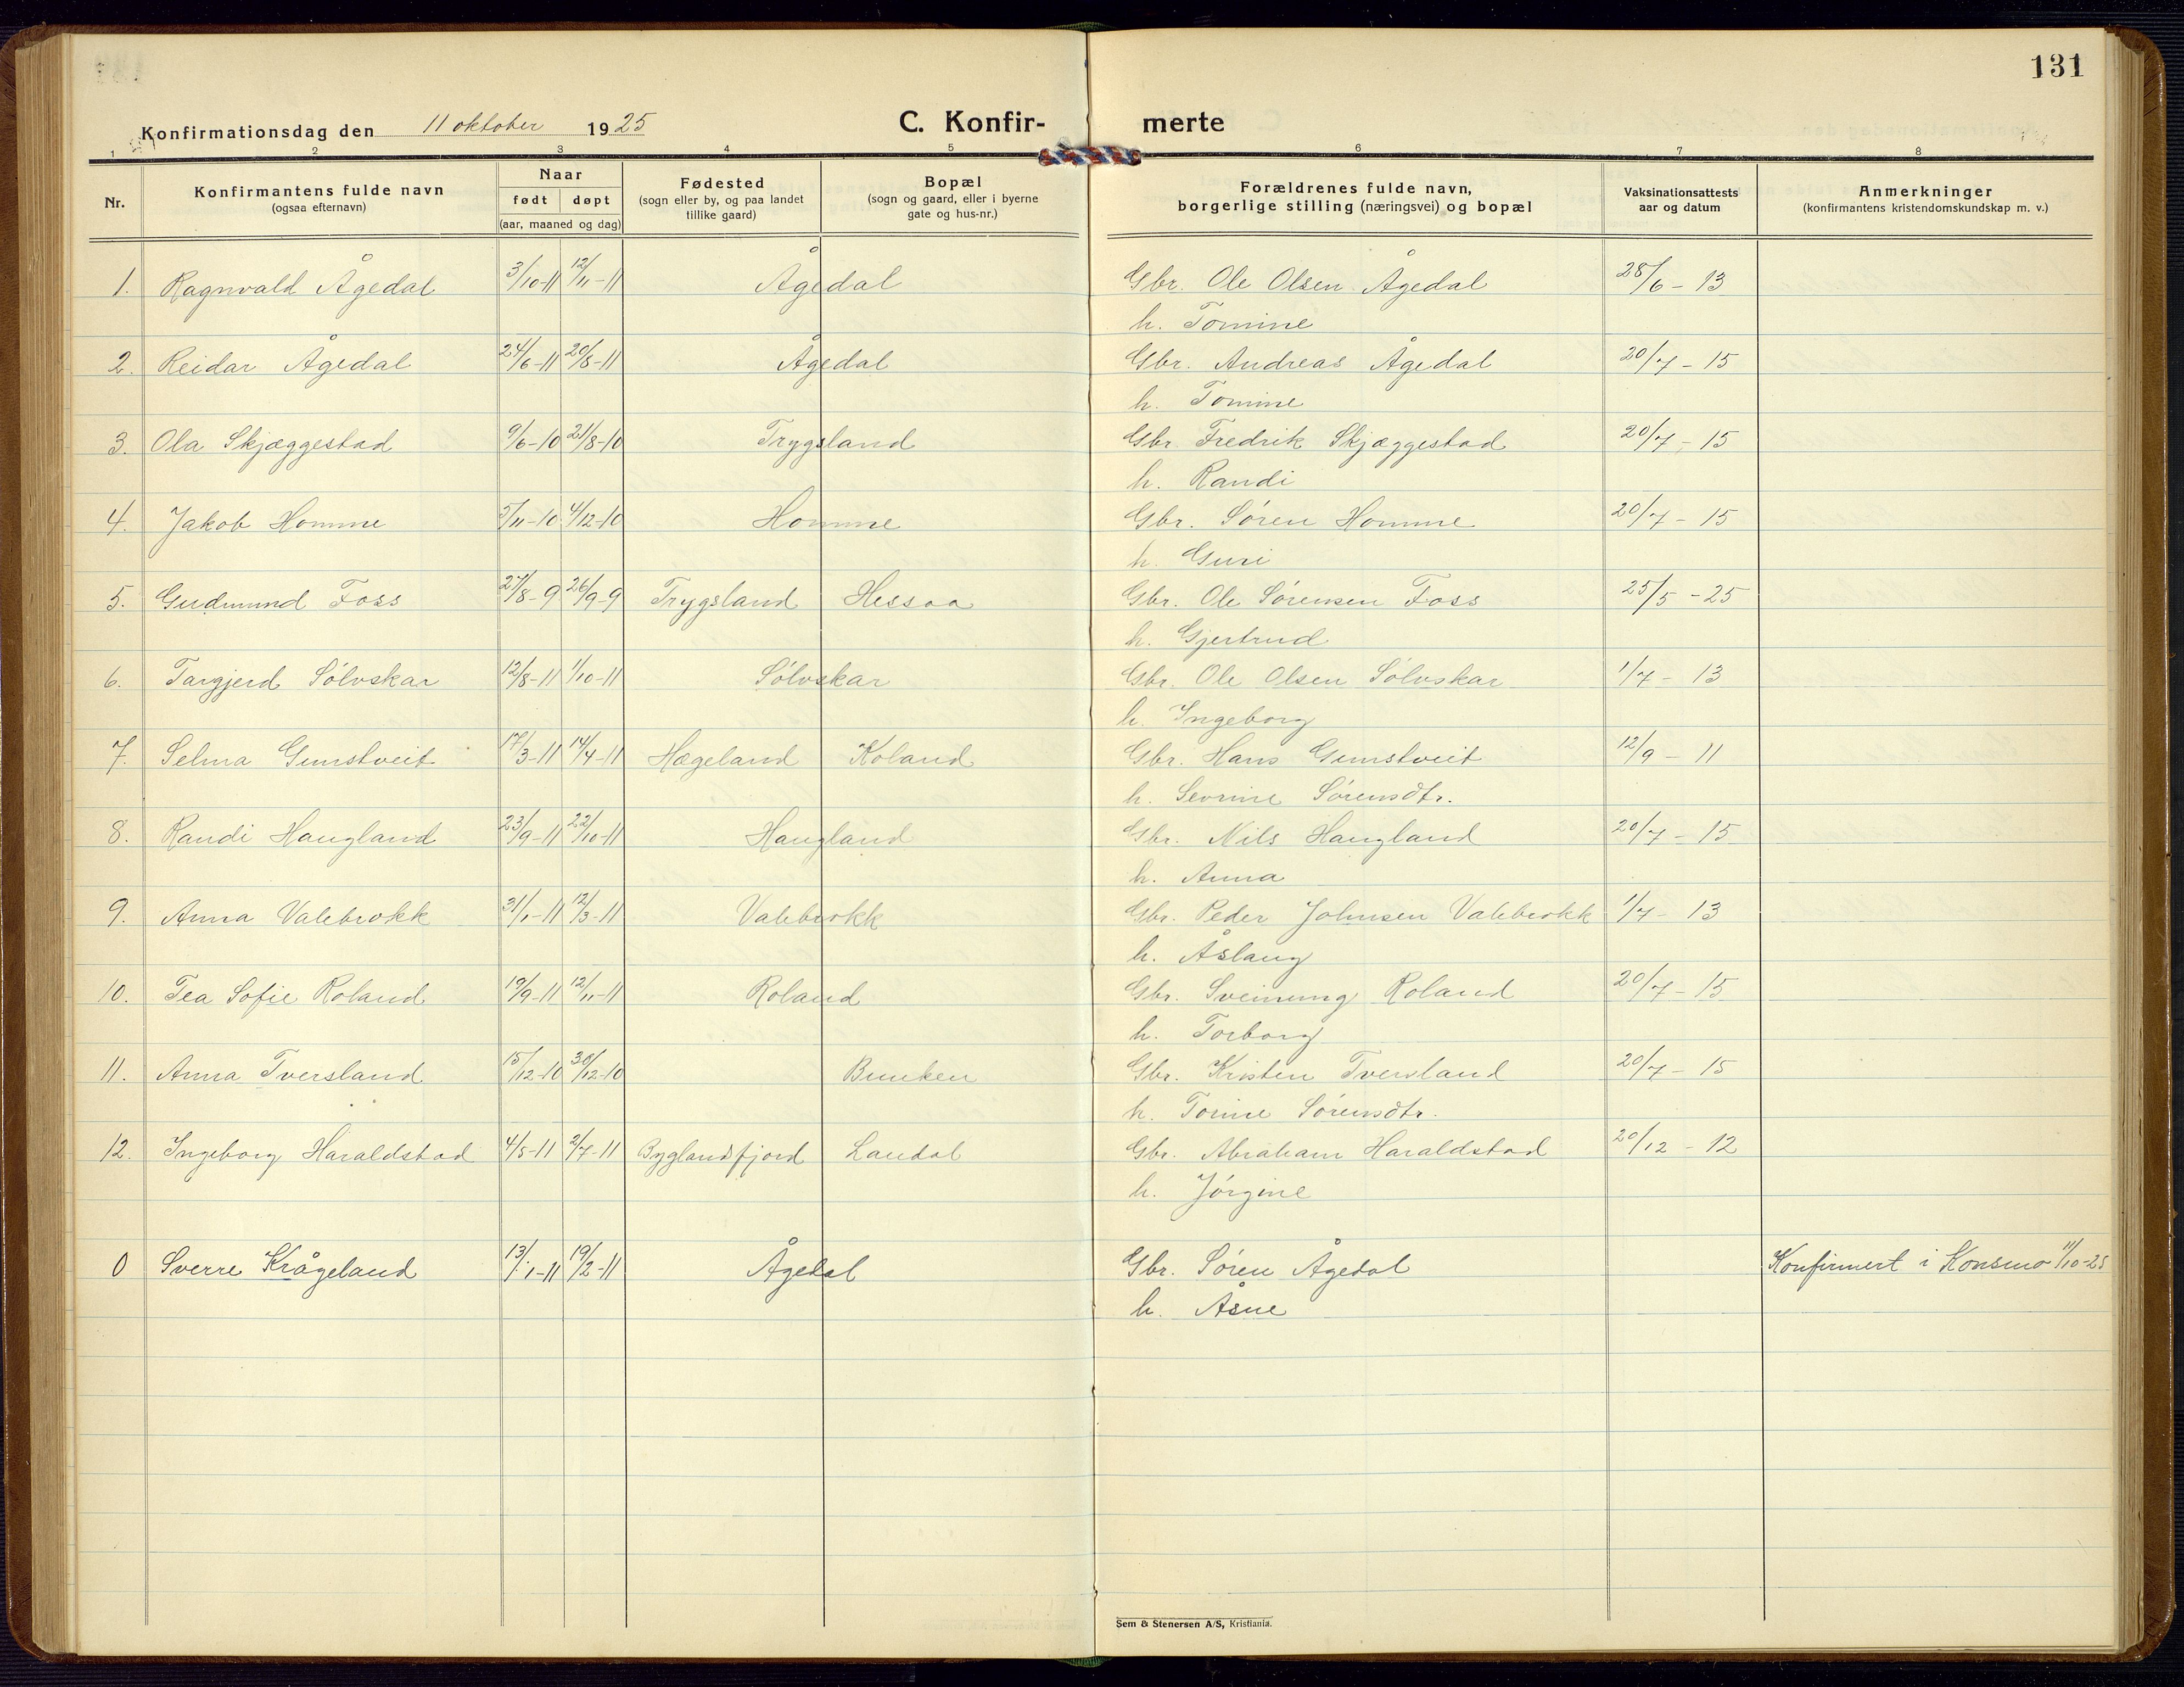 131
Konfirmationsdag den 11 oktober 1925 C. Konfirmerte
1 2 3 4 5 6 7 8
Nr. Konfirmantens fulde navn (ogsaa efternavn) Naar født døpt (aar, maaned og dag) Fødested (sogn eller by, og paa landet tillike gaard) Bopæl (sogn og gaard, eller i byerne gate og hus-nr.) Forældrenes fulde navn, borgerlige stilling (næringsvei) og bopæl Vaksinationsattests aar og datum Anmerkninger (konfirmantens kristendomskundskap m. v.)
1. Ragnvald Ågedal 3/10-11 12/11-11 Ågedal Gbr. Ole Olsen Ågedal 28/6-13
h. Tomine
2. Reidar Ågedal 24/6-11 20/8-11 Ågedal Gbr. Andreas Ågedal 20/7-15
h. Tomine
3. Ola Skjæggestad 9/6-10 21/8-10 Trygsland Gbr. Fredrik Skjæggestad 20/7-15
h. Randi
4. Jakob Homme 5/11-10 4/12-10 Homme Gbr. Søren Homme 20/7-15
h. Guri
5. Gudmund Foss 27/8-9 26/9-9 Trygsland Hessaa Gbr. Ole Sørensen Foss 25/5-25
h. Gjertrud
6. Targjerd Sølvskar 12/8-11 1/10-11 Sølvskar Gbr. Ole Olsen Sølvskar 1/7-13
h. Ingeborg
7. Selma Gumstveit 17/3-11 14/4-11 Hægeland Koland Gbr. Hans Gumstveit 12/9-11
h. Sevrine Sørensdtr.
8. Randi Haugland 23/9-11 22/10-11 Haugland Gbr. Nils Haugland 20/7-15
h. Anna
9. Anna Valebrokk 31/1-11 12/3-11 Valebrokk Gbr. Peder Johnsen Valebrokk 1/7-13
h. Åslaug
10. Tea Sofie Roland 19/9-11 12/11-11 Roland Gbr. Sveinung Roland 20/7-15
h. Torborg
11. Anna Tversland 15/12-10 30/12-10 Bunken Gbr. Kristen Tversland 20/7-15
h. Tomine Sørensdtr.
12. Ingeborg Haraldstad 4/5-11 2/7-11 Byglandsfjord Laudal Gbr. Abraham Haraldstad 20/12-12
h. Jørgine
0 Sverre Krågeland 13/1-11 19/2-11 Ågedal Gbr. Søren Ågedal Konfirmert i Konsmo 11/10-25
h. Åsne
Sem & Stenersen A/S, Kristiania.